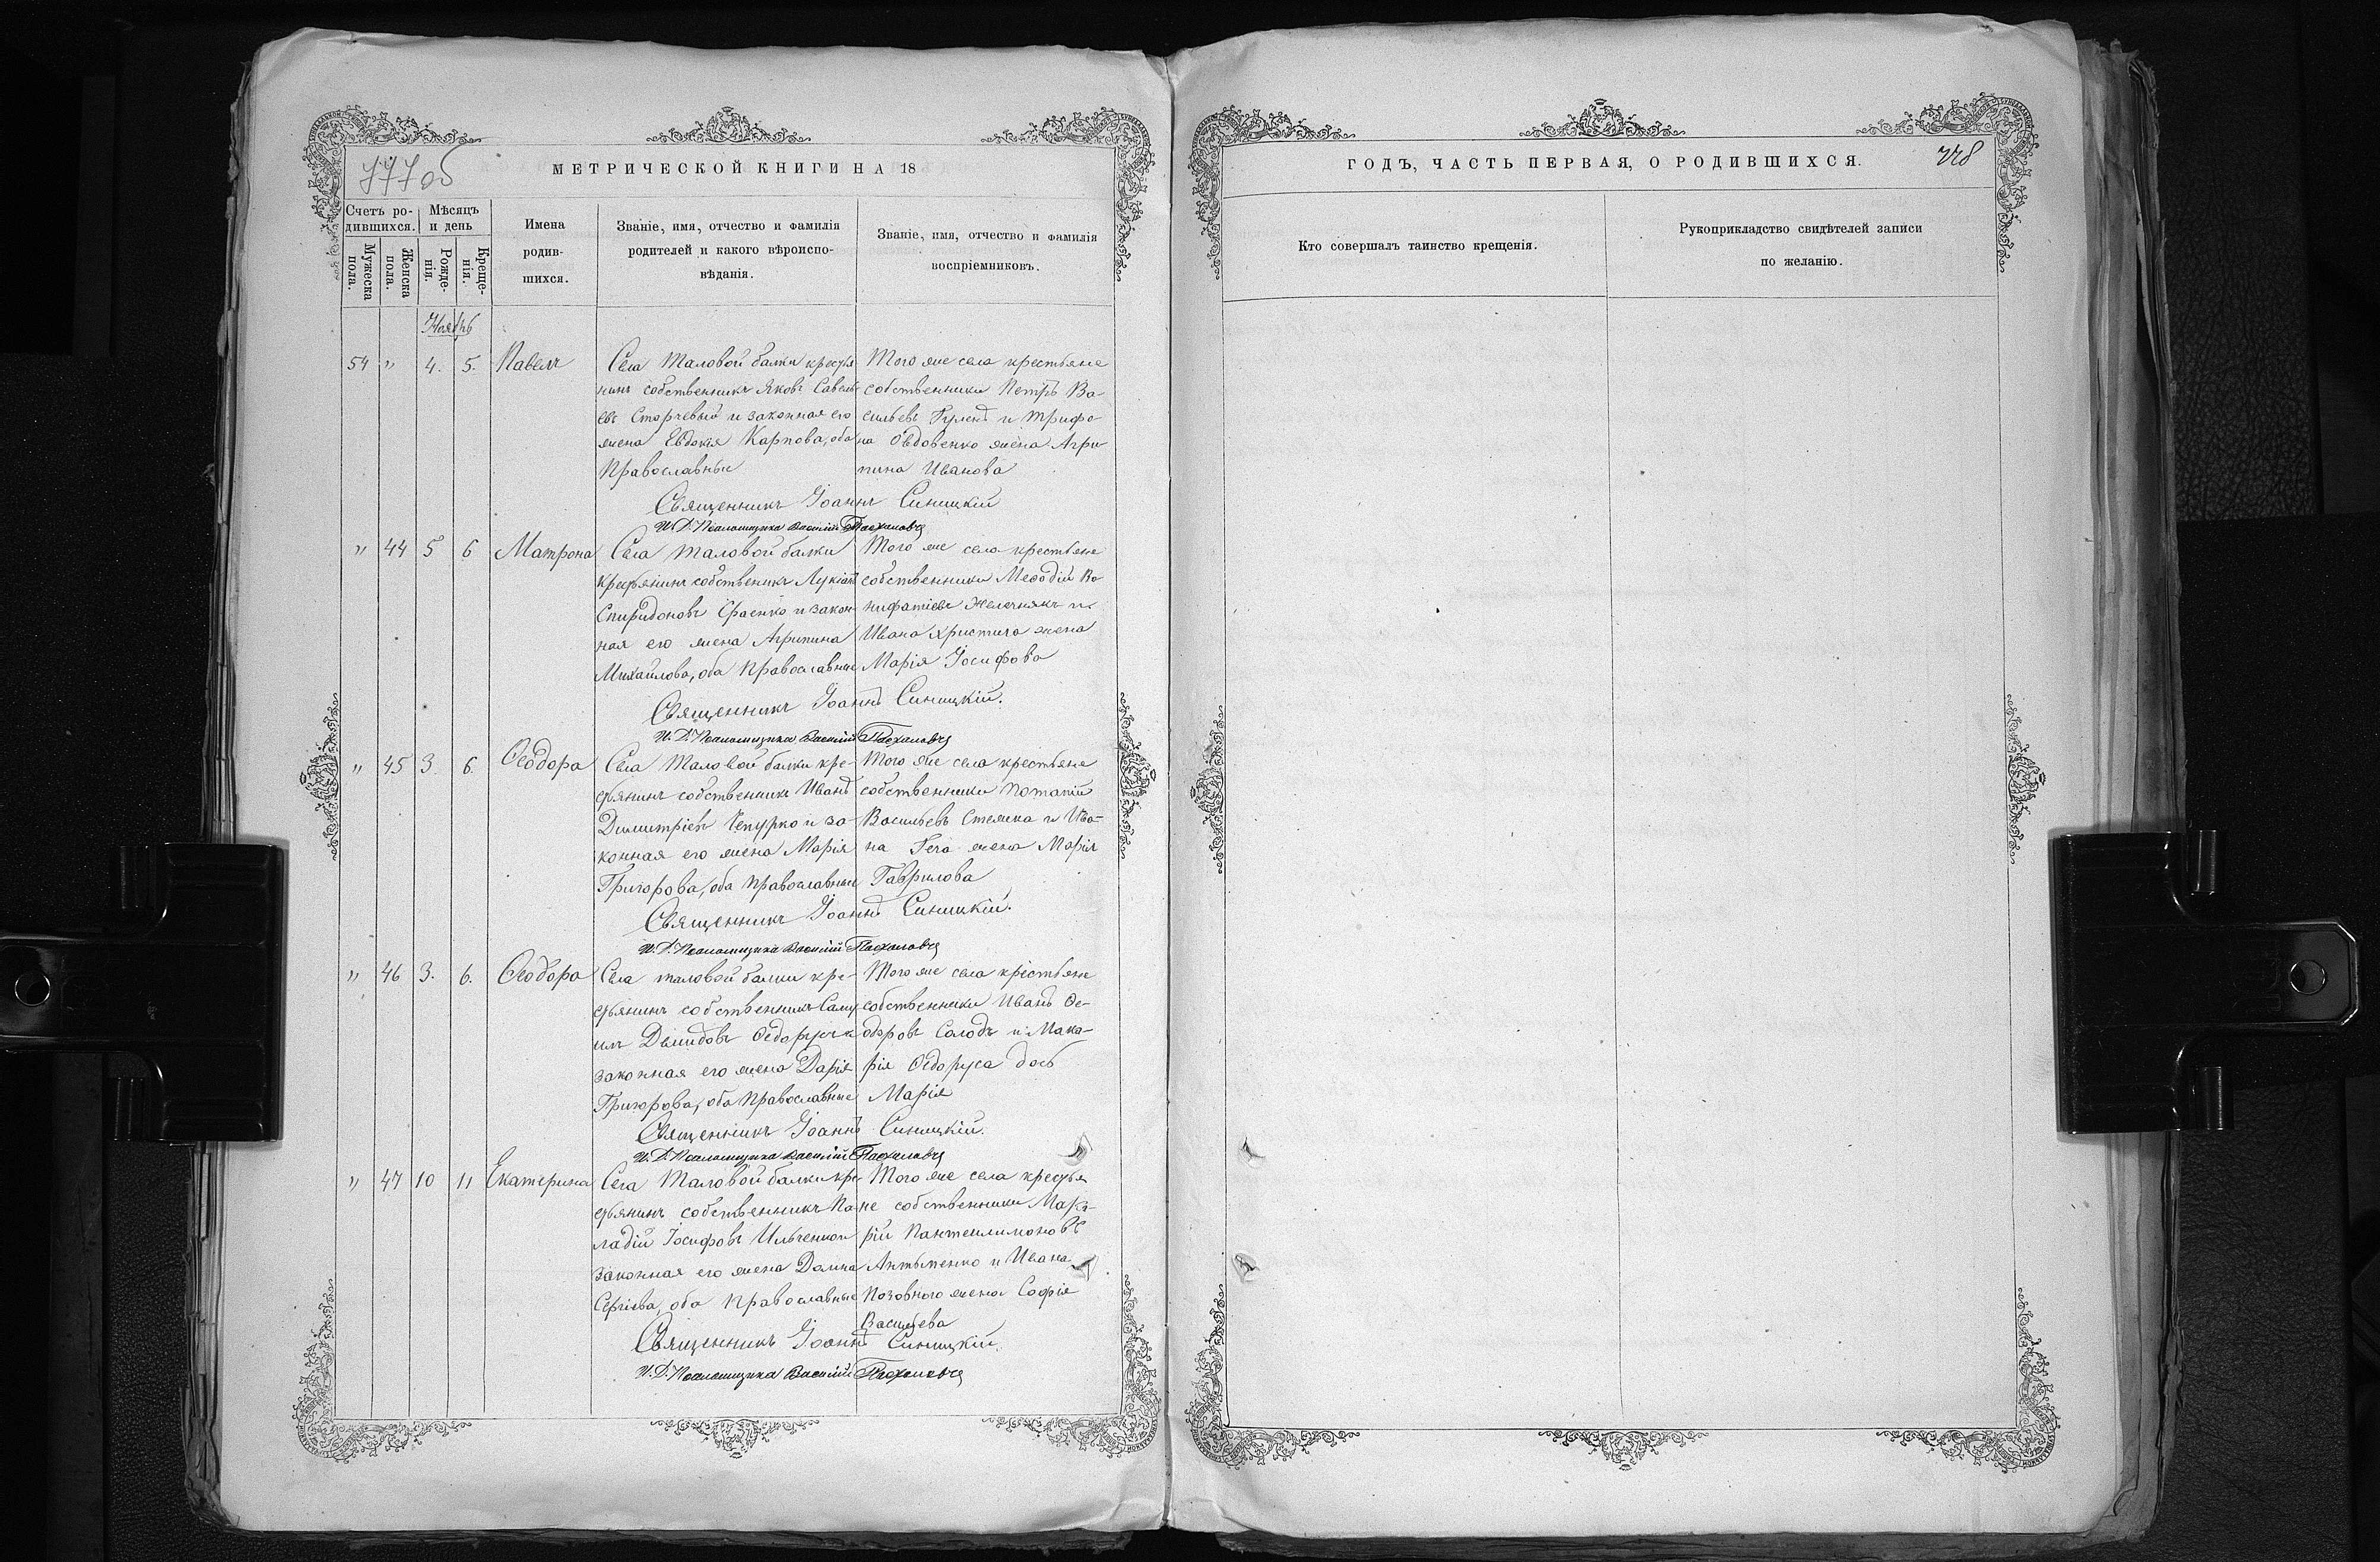 777 об
МЕТРИЧЕСКОЙ КНИГИ НА 18
Счетъ ро-
дившихся.
Мѣсяцъ
и день
Мужеска
пола.
Женска
пола.
Рожде-
нія.
Креще-
нія.
Имена
родив-
шихся.
Званіе, имя, отчество и фамилія
родителей и какого вѣроиспо-
вѣданія.
Званіе, имя, отчество и фамилія
воспріемниковъ.
Ноябрь
54 " 4. 5. Павелъ
Села Таловой балки крестья
нинъ собственникъ Яковъ Савель
евъ Сторчевый и законная его
жена Евдокія Карпова, оба
Православны
Того же села крестьяне
собственники Петръ Ва-
сильевъ и Трифо-
на Овдовенко жена Агри-
пина Иванова
Священникъ Іоаннъ Синицкій
И. Д. Псаломщика Василій
" 44 5 6 Матрона
Села Таловой балки
крестьянинъ собственикъ Лукіанъ
Спиридоновъ и закон-
ная его жена Агрипина
Михайлова, оба Православные
Того же села крестьяне
собственники Меѳодій Во
нифатіевъ Железнякъ и
Ивана Христича жена
Марія Іосифова
Священникъ Іоаннъ Синицкій.
И. Д. Псаломщика Василій
" 45 3. 6. Ѳеодора
Села Таловой балки кре-
стьянинъ собственникъ Иванъ
Димитріевъ Чепурко и за-
конная его жена Марія
Григорова, оба православные
Того же села крестьяне
собственники Потапій
Васильевъ Стежка и Ива-
на Гега жена Марія
Гаврилова
Священникъ Іоаннъ Синицкій.
И. Д. Псаломщика Василій
" 46 3. 6. Ѳеодора
Села таловой балки кре-
стьянинъ собственникъ Саму
илъ Демидовъ Ѳедорусъ и
законная его жена Дарія
Григорова, оба Православные
Того же села крістьяне
собственники Иванъ Ѳе-
одоровъ Солодъ и Мака-
рія Ѳедоруса дочь
Марія
Священникъ Іоаннъ Синицкій.
И. Д. Псаломщика Василій
" 47 10 11 Екатерина
Села Таловой балки кре
стьянинъ собственникъ Па
ладій Іосифовъ Ильченко и
законная его жена Домна
Сергіева, оба православные
Того же села крестья
не собственники Мака-
рій Пантелимоновъ
Антыпенко и Ивана
Позовного жена Софія
Васильева
Священникъ Іоаннъ Синицкій.
И. Д. Псаломщика Василій
ГОДЪ, ЧАСТЬ ПЕРВАЯ, О РОДИВШИХСЯ.
778
Кто совершалъ таинство крещенія.
Рукоприкладство свидѣтелей записи
по желанію.